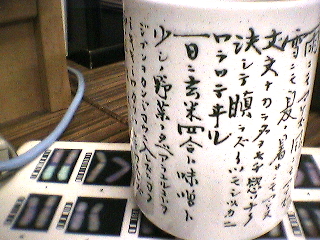 雪ニモ夏ノ暑サニモ
丈夫ナカラダヲモチ慾ハナク
決シテ瞋ラズイツモシヅカニ
ワラッテヰル
一日ニ玄米四合ト味噌ト
少シノ野菜ヲタベアラユルコトヲ
ジブンヲカンジョウニ入レズニ